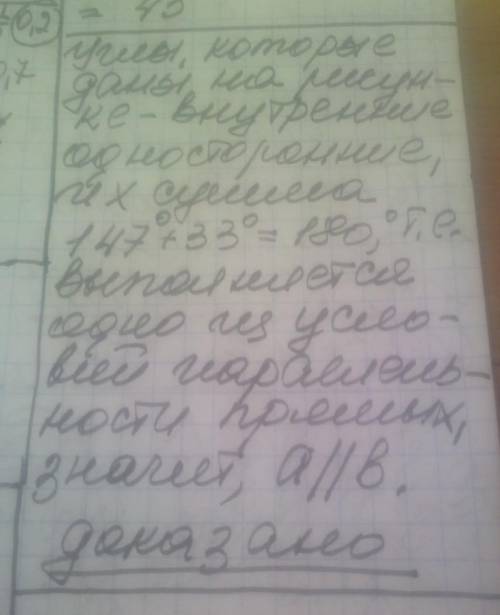 0,2 = 45
0,7
углы, которые
даны на рисун-
ке - внутренние
односторонние,
их сумма
147°+33°=180,° т.е.
выполняется
одно из усло-
вий параллель-
ности прямых,
значит, a||b.
доказано